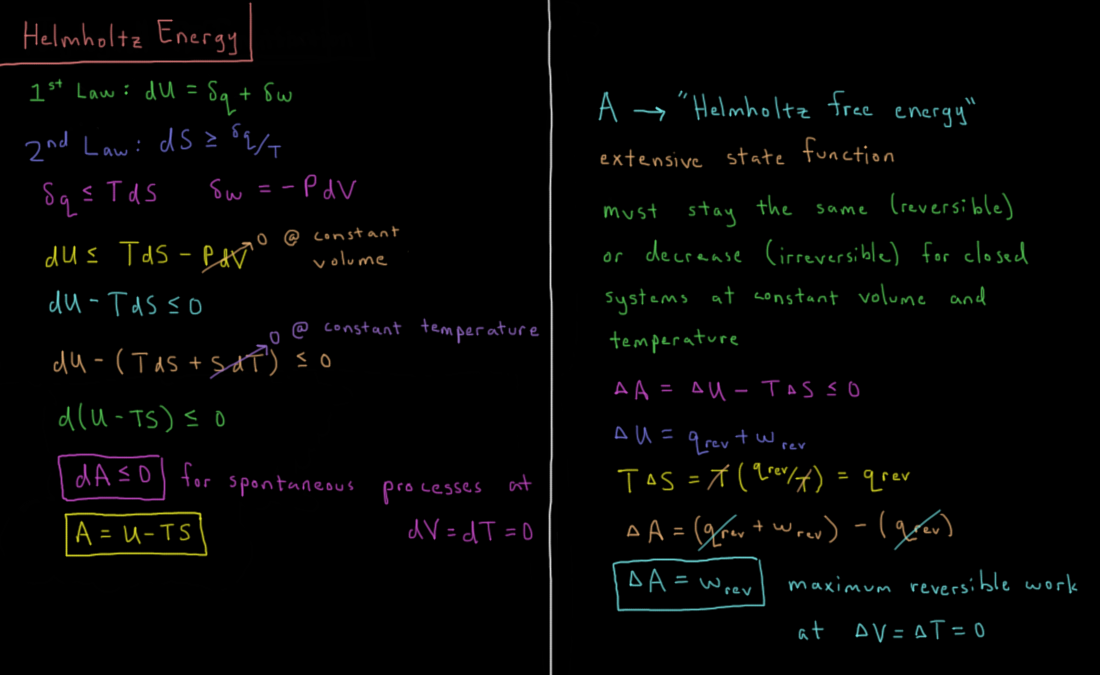 Helmholtz Energy
1st Law: dU = δq + δw
2nd Law: dS ≥ δq/T
δq ≤ TdS δw = -PdV
dU ≤ TdS - PdV 0 @ constant
volume
dU - TdS ≤ 0
0 @ constant temperature
dU - (TdS + SdT) ≤ 0
d(U - TS) ≤ 0
dA ≤ 0 for spontaneous processes at
A = U - TS dV = dT = 0
A → "Helmholtz free energy"
extensive state function
must stay the same (reversible)
or decrease (irreversible) for closed
systems at constant volume and
temperature
ΔA = ΔU - TΔS ≤ 0
ΔU = qrev + wrev
TΔS = T(qrev/T) = qrev
ΔA = (qrev + wrev) - (qrev)
ΔA = wrev maximum reversible work
at ΔV = ΔT = 0